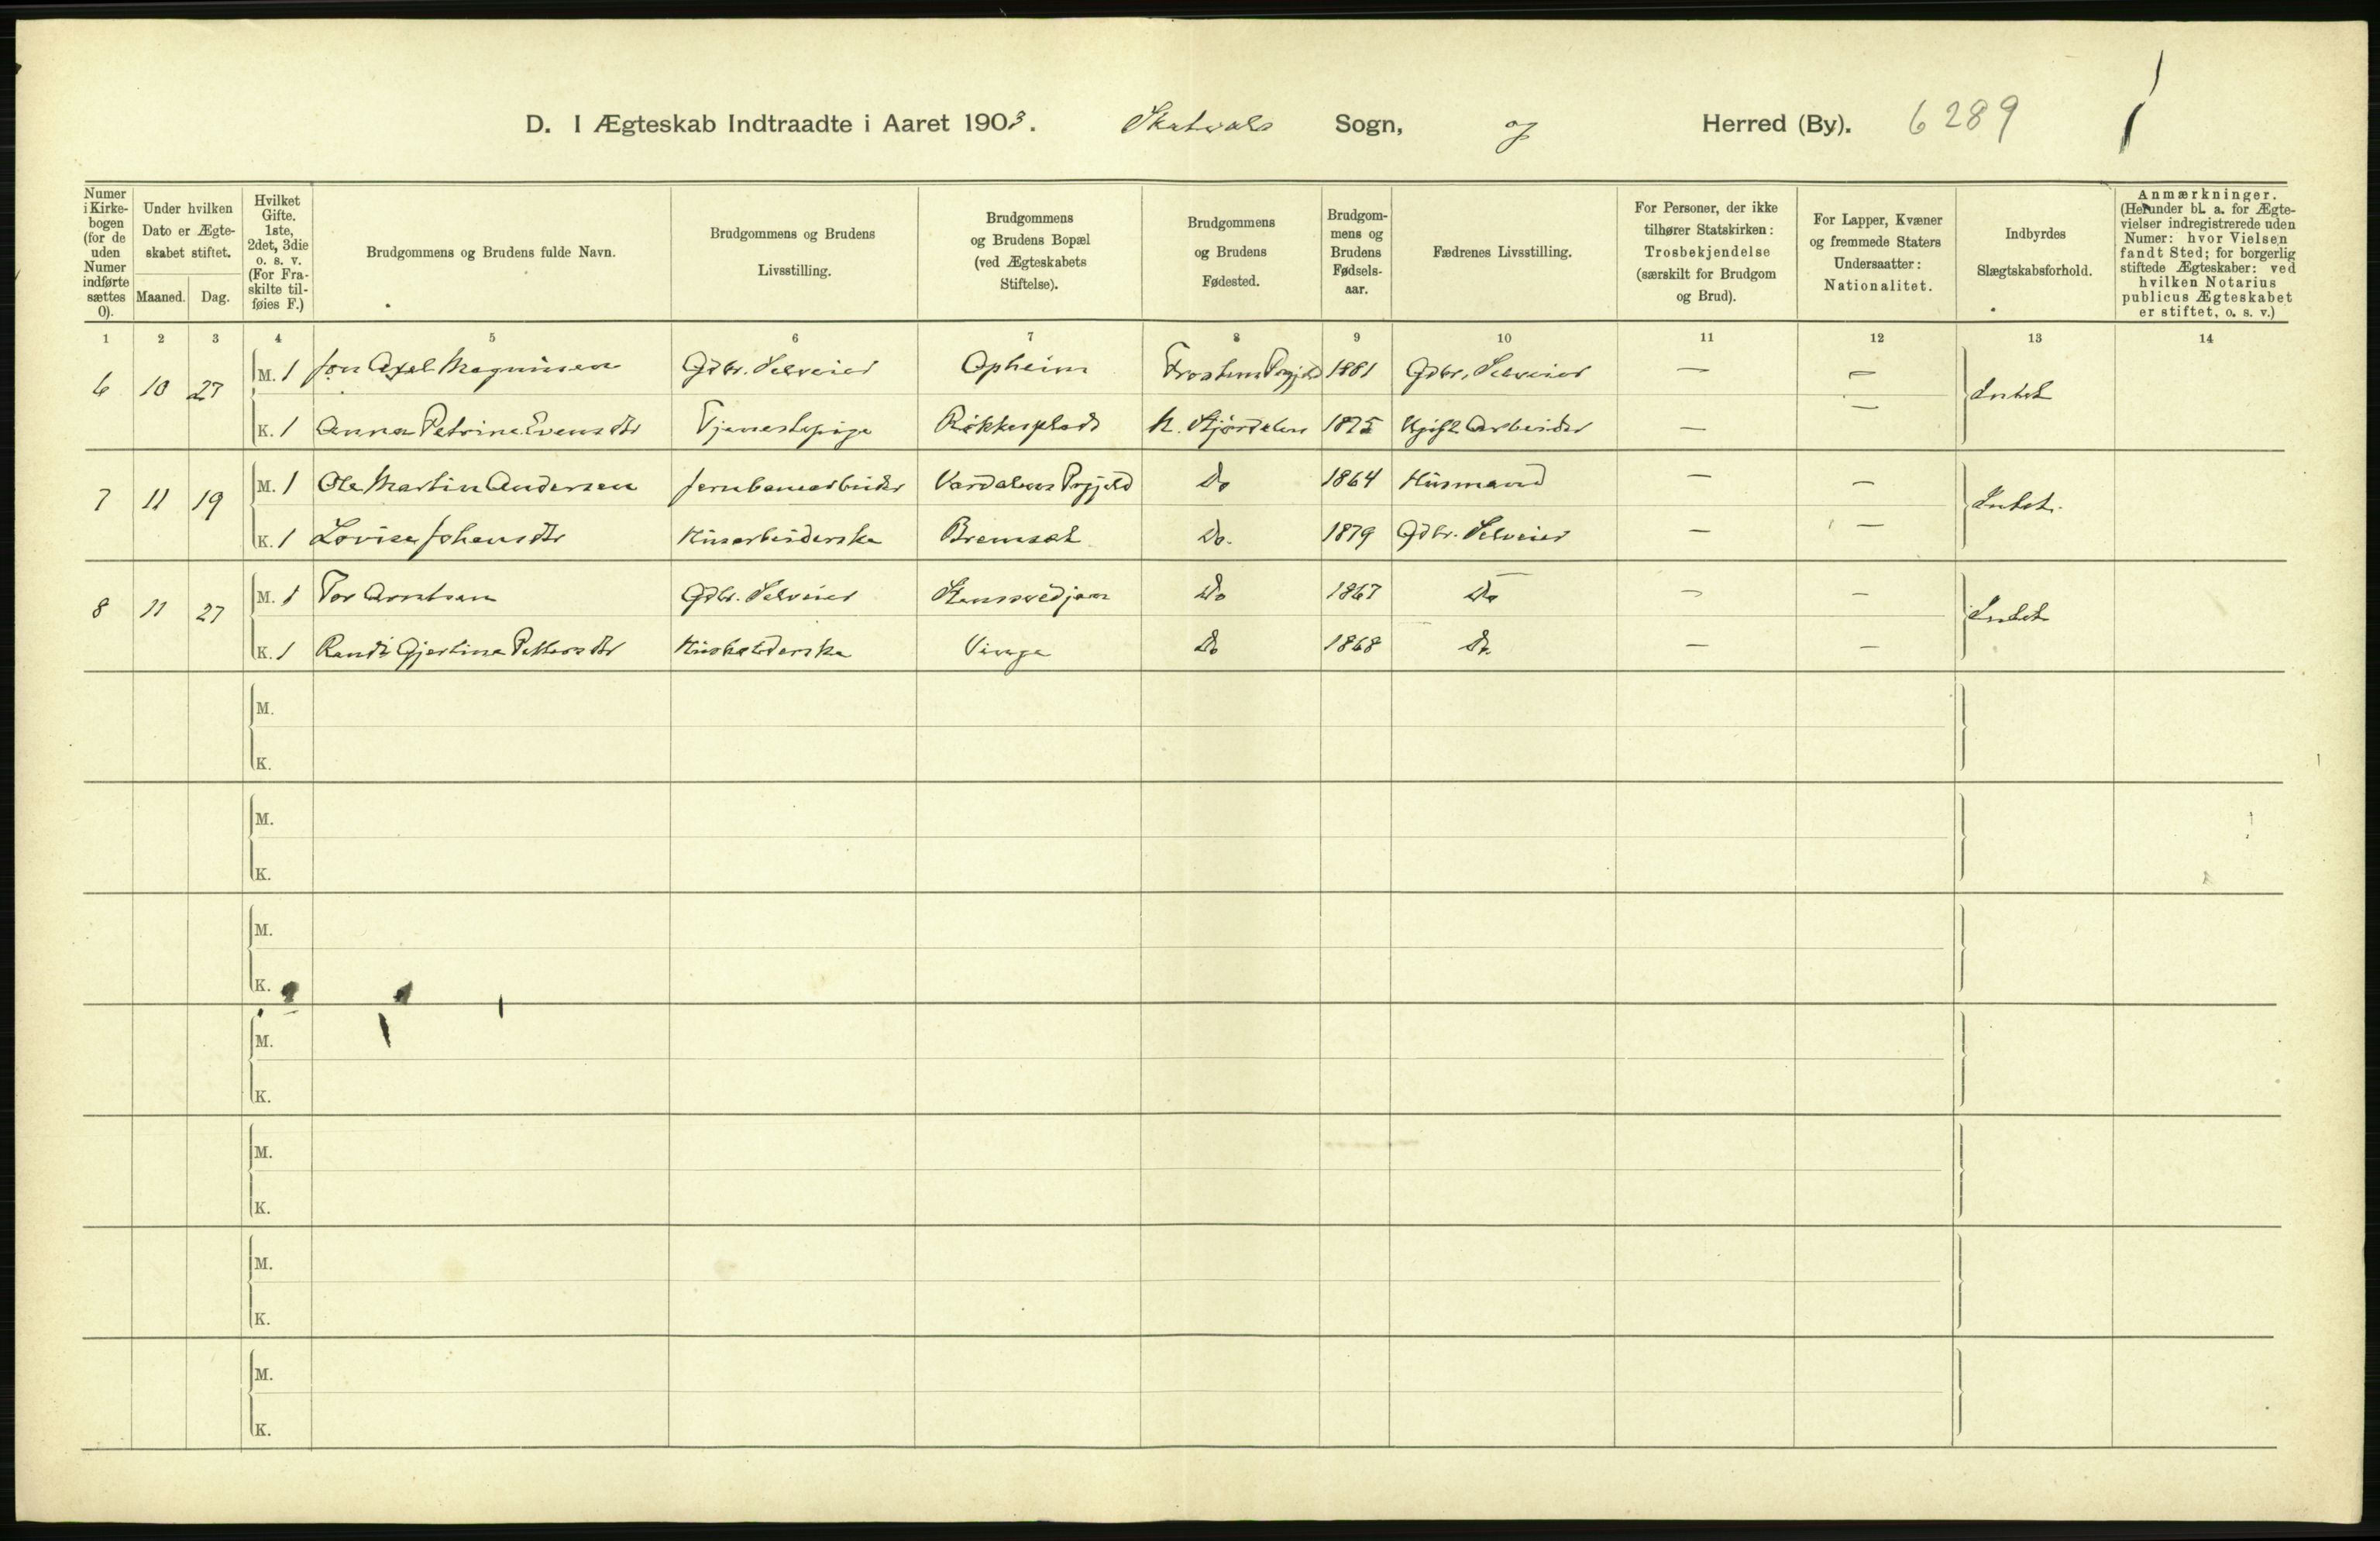 D. I Ægteskab Indtraadte i Aaret 1903. Skatvals Sogn, og Herred (By). 6289
Numer i Kirkebogen (for de uden Numer indførte sættes 0).
Under hvilken Dato er Ægteskabet stiftet.
Maaned. Dag.
Hvilket Gifte. 1ste, 2det, 3die o. s. v. (For Fraskilte tilføies F.)
Brudgommens og Brudens fulde Navn.
Brudgommens og Brudens Livsstilling.
Brudgommens og Brudens Bopæl (ved Ægteskabets Stiftelse).
Brudgommens og Brudens Fødested.
Brudgommens og Brudens Fødselsaar.
Fædrenes Livsstilling.
For Personer, der ikke tilhører Statskirken: Trosbekjendelse (særskilt for Brudgom og Brud).
For Lapper, Kvæner og fremmede Staters Undersaatter: Nationalitet.
Indbyrdes Slægtskabsforhold.
Anmærkninger. (Herunder bl. a. for Ægtevielser indregistrerede uden Numer: hvor Vielsen fandt Sted; for borgerlig stiftede Ægteskaber: ved hvilken Notarius publicus Ægteskabet er stiftet, o. s. v.)
1 2 3 4 5 6 7 8 9 10 11 12 13 14
6 10 27 M. 1 Jon Axel Magnussen Gdbr. Selveier Opheim Frostens Prgjeld 1881 Gdbr. Selveier — — Intet
K. 1 Anna Petrine Evensdtr Tjenestepige Røkkesplads N. Stjørdalen 1875 Ugift Arbeider — —
7 11 19 M. 1 Ole Martin Andersen Jernbanearbeider Værdalens Prgjeld Do 1864 Husmand — — Intet.
K. 1 Lovise Johansdtr Husarbeiderske Bremset Do. 1879 Gdbr. Selveier — —
8 11 27 M. 1 Tor Arntsen Gdbr. Selveier Do 1867 Do — — Intet
K. 1 Randi Gjertine Pettersdtr Husholderske Vinge Do 1868 Do. — —
M.
K.
M.
K.
M.
K.
M.
K.
M.
K.
M.
K.
M.
K.